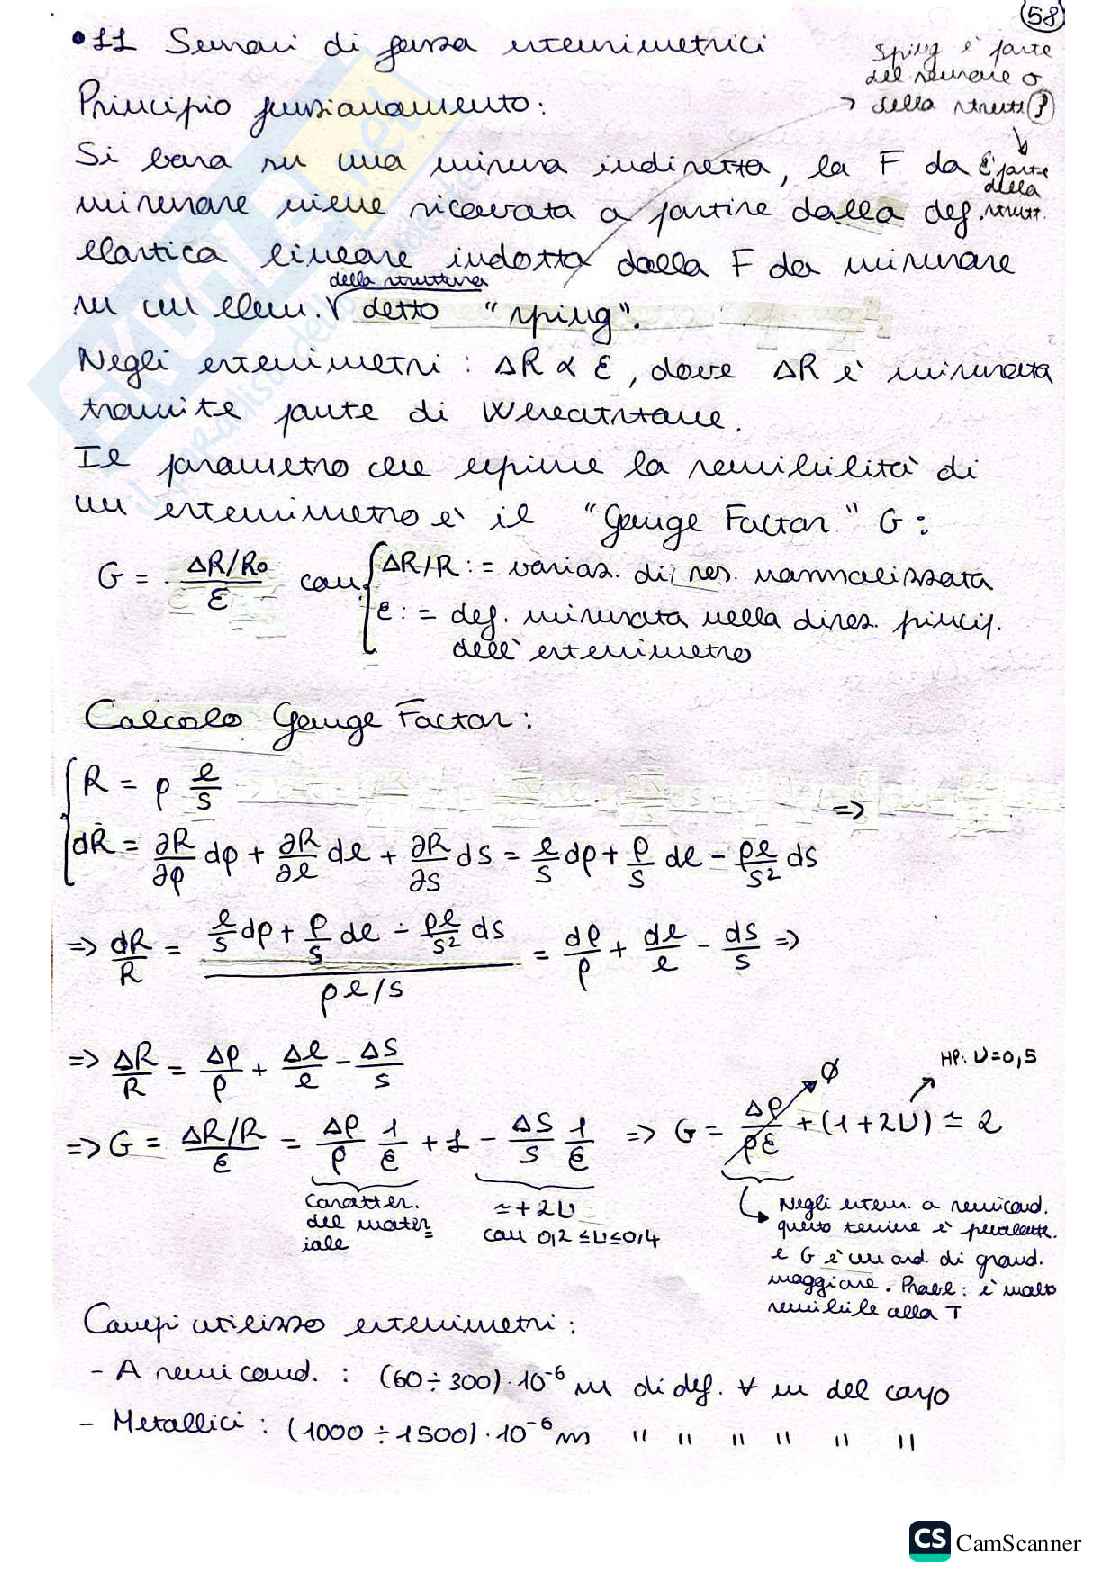 58
• 11 Sensori di forza estensimetrici
Spring è parte
del sensore o
→ della strutt ?
È parte
della
strutt.
Principio funzionamento:
Si basa su una misura indiretta, la F da
misurare viene ricavata a partire dalla def.
elastica lineare indotta dalla F da misurare
su un elem. della struttura detto "spring".
Negli estensimetri : ΔR ∝ ε, dove ΔR è misurata
tramite ponte di Wheatstone.
Il parametro che esprime la sensibilità di
un estensimetro è il "Gauge Factor" G :
G = (ΔR/R₀)/ε con { ΔR/R : = variaz. di res. normalizzata
ε : = def. misurata nella direz. princip.
dell'estensimetro
Calcolo Gauge Factor :
{ R = ρ l/S
dR = ∂R/∂ρ dρ + ∂R/∂l dl + ∂R/∂S dS = l/S dρ + ρ/S dl - ρl/S² dS =>
=> dR/R = (l/S dρ + ρ/S dl - ρl/S² dS)/(ρ l/S) = dρ/ρ + dl/l - dS/S =>
=> ΔR/R = Δρ/ρ + Δl/l - ΔS/S
HP: ν=0,5
=> G = (ΔR/R)/ε = Δρ/ρ 1/ε + 1 - ΔS/S 1/ε => G = Δρ/ρε ↗ Ø + (1+2ν) ≃ 2
caratter.
del mater
iale
≃ +2ν
con 0,2 ≤ ν ≤ 0,4
↳ Negli estem. a semicond.
questo termine è prevalente.
e G è un ord. di grand.
maggiore. Probl : è molto
sensibile alla T
Campi utilizzo estensimetri :
- A semicond. : (60÷300)·10⁻⁶ m di def. ∀ m del corpo
- Metallici : (1000÷1500)·10⁻⁶ m " " " " " "
CS CamScanner